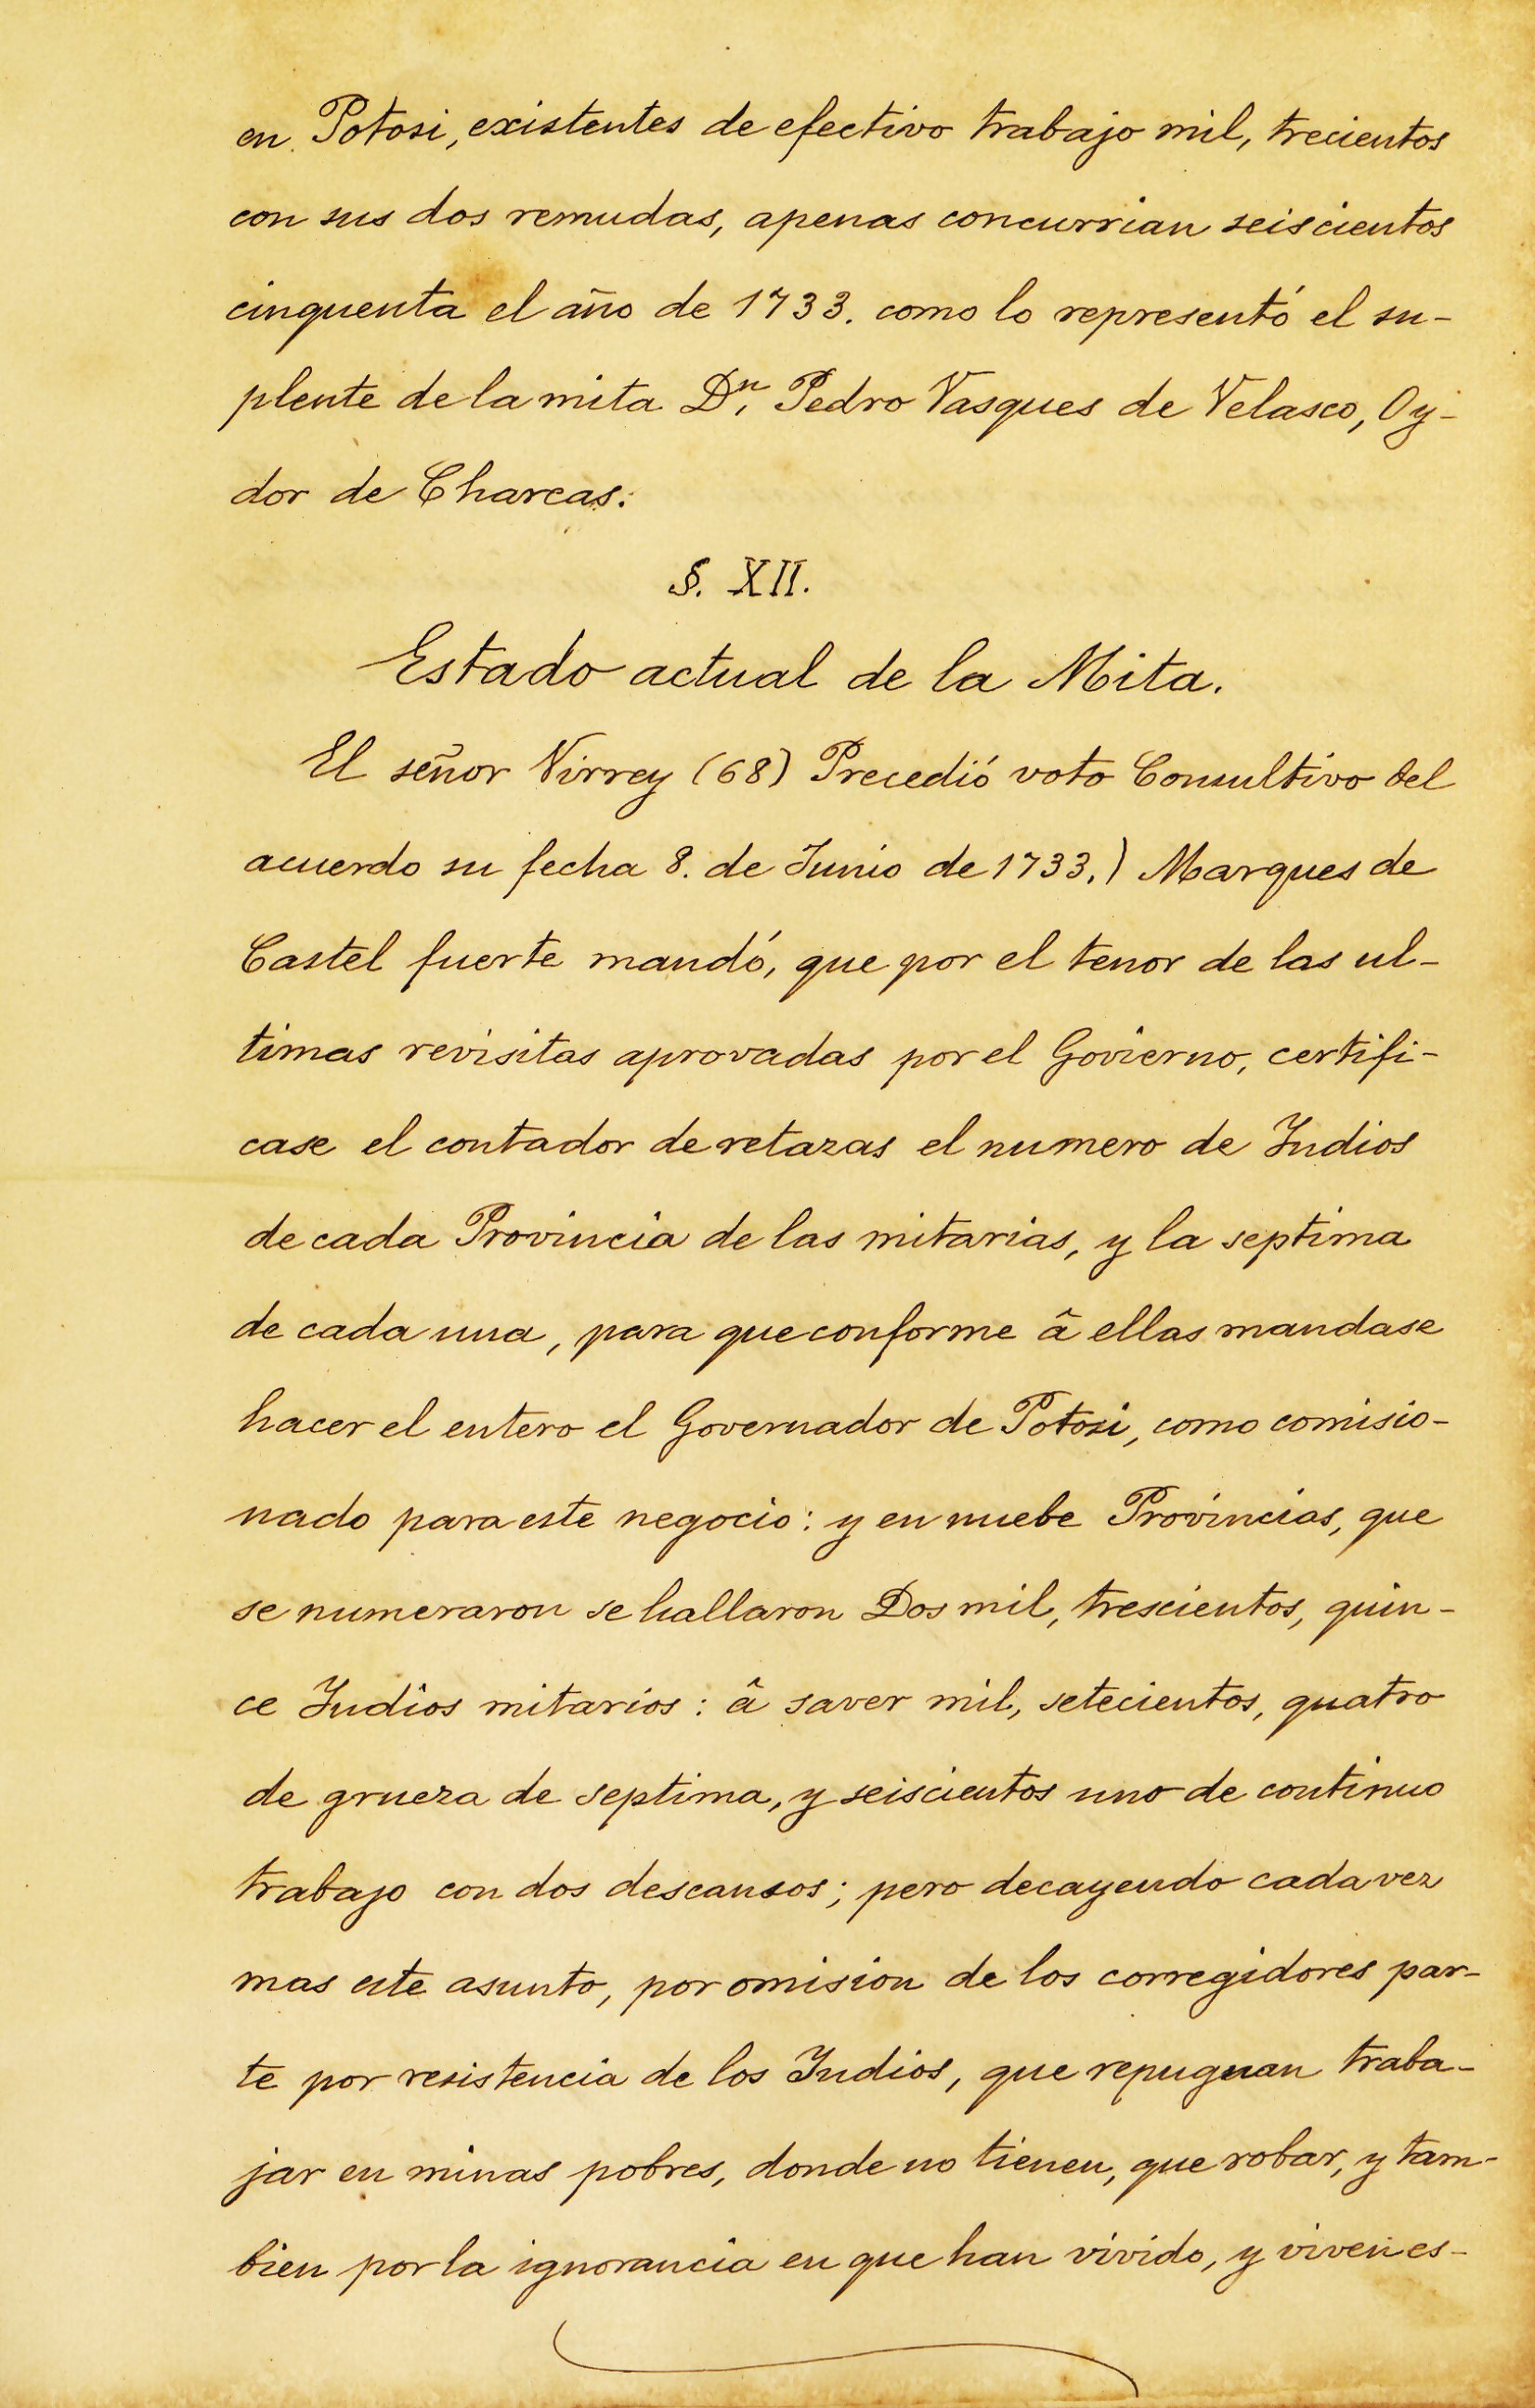 en Potosi, existentes de efectivo trabajo mil, trecientos
con sus dos remudas, apenas concurrian seiscientos
cinquenta el año de 1733. como lo representó el su-
plente de la mita Dn. Pedro Vasques de Velasco, Oy-
dor de Charcas.
§. XII.
Estado actual de la Mita.
El señor Virrey (68) Precedió voto Consultivo del
acuerdo su fecha 8. de Junio de 1733.) Marques de
Castel fuerte mandó, que por el tenor de las ul-
timas revisitas aprovadas por el Govierno, certifi-
case el contador de retazas el numero de Indios
de cada Provincia de las mitarias, y la septima
de cada una, para que conforme â ellas mandase
hacer el entero el Governador de Potosi, como comisio-
nado para este negocio: y en nuebe Provincias, que
se numeraron se hallaron Dos mil, trescientos, quin-
ce Indios mitarios: â saver mil, setecientos, quatro
de grueza de septima, y seiscientos uno de continuo
trabajo con dos descansos; pero decayendo cada vez
mas este asunto, por omision de los corregidores par-
te por resistencia de los Indios, que repugnan traba-
jar en minas pobres, donde no tienen, que robar, y tam-
bien por la ignorancia en que han vivido, y viven es-